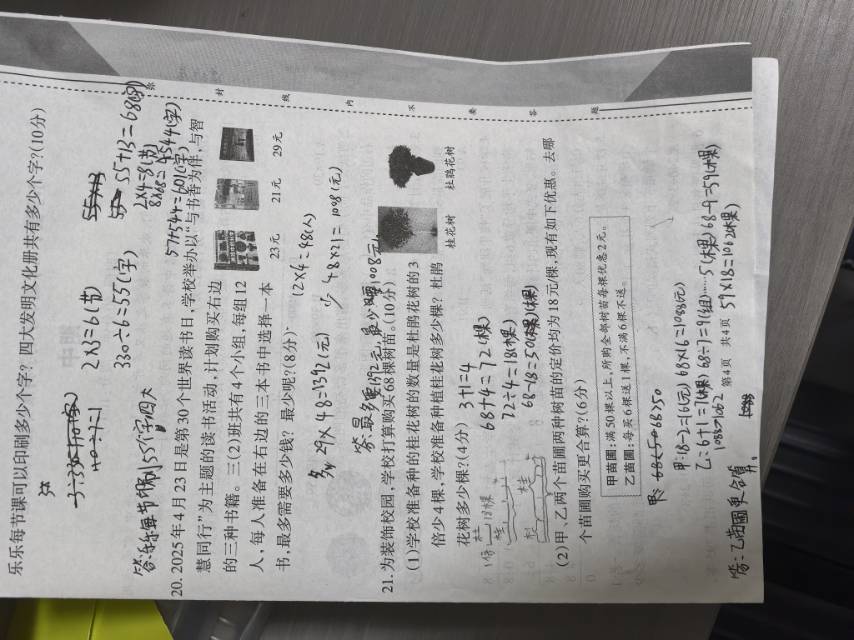 乐乐每节课可以印刷多少个字?四大发明文化册共有多少个字?(10分)
2×3=6(节)
330÷6=55(字)
55+13=68(字)
2×4=8(节)
8×68=544(字)
57+544=601(字)
答:乐乐每节印刷55个字四大
20. 2025年4月23日是第30个世界读书日,学校举办以“与书香为伴,与智
慧同行”为主题的读书活动,计划购买右边
的三种书籍。三(2)班共有4个小组,每组12
人,每人准备在右边的三本书中选择一本
书,最多需要多少钱?最少呢?(8分)
23元
21元
29元
12×4=48(人)
多 29×48=1392(元)
少 48×21=1008(元)
答:最多要1392元,最少要1008元。
21. 为装饰校园,学校打算购买68棵树苗。(10分)
(1)学校准备种的桂花树的数量是杜鹃花树的3
倍少4棵,学校准备种植桂花树多少棵?杜鹃
花树多少棵?(4分)
桂花树
杜鹃花树
3+1=4
68+4=72(棵)
72÷4=18(棵)
68-18=50(棵)
(2)甲、乙两个苗圃两种树苗的定价均为18元/棵,现有如下优惠。去哪
个苗圃购买更合算?(6分)
甲苗圃:满50棵以上,所购全部树苗每棵优惠2元。
乙苗圃:每买6棵送1棵,不满6棵不送。
68>50
甲:18-2=16(元) 68×16=1088(元)
乙:6+1=7(棵) 68÷7=9(组)……5(棵) 68-9=59(棵)
1088>1062
59×18=1062(棵)
答:乙苗圃更合算。
第4页 共4页